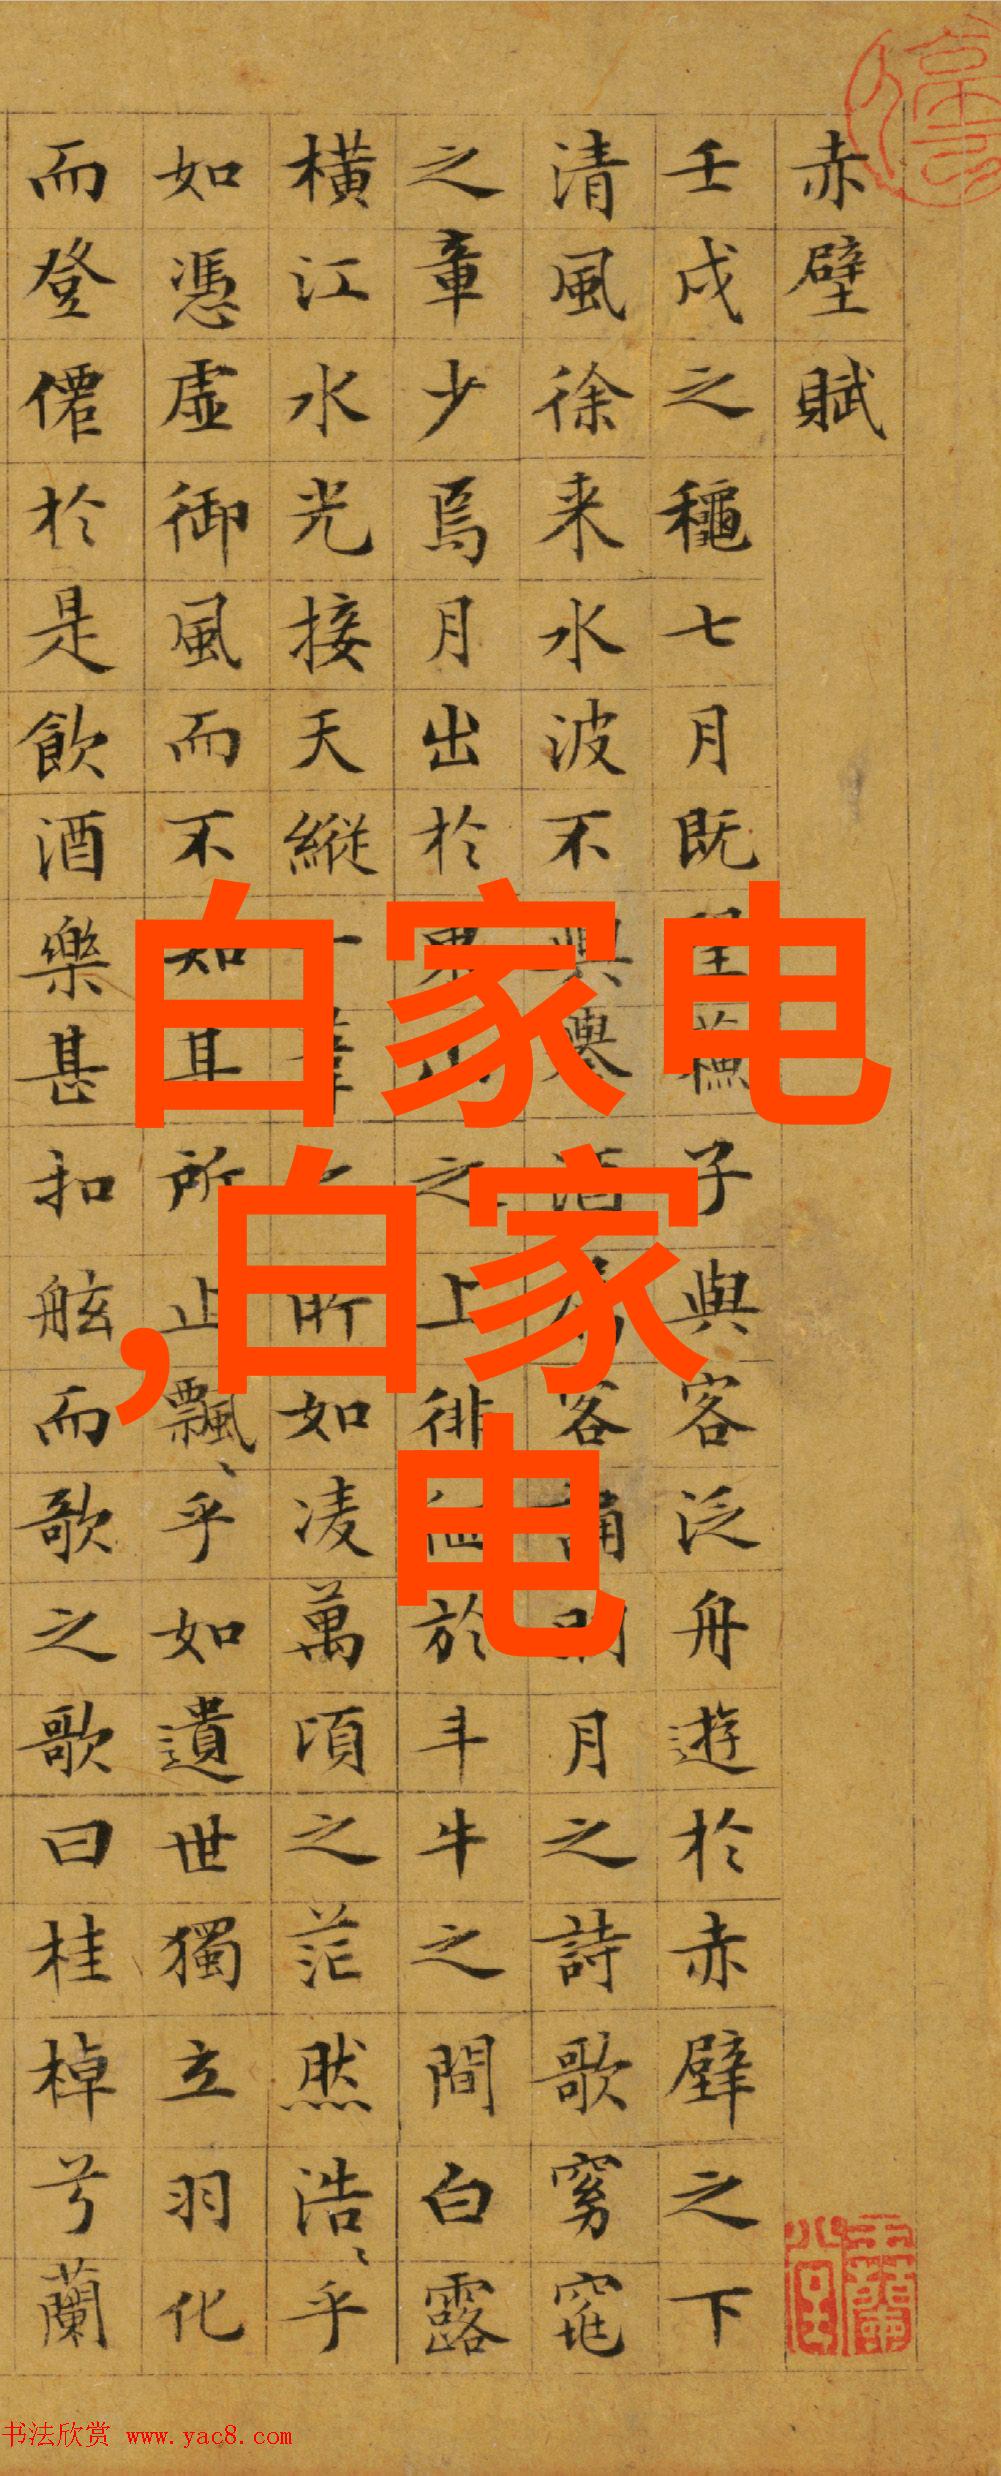 赤壁賦
壬戌之穐七月既望蘓子與客泛舟遊於赤壁之下
清風徐来水波不興舉酒屬客誦明月之詩歌窈窕
之章少焉月出於東山之上徘徊於斗牛之間白露
橫江水光接天縱一葦之所如凌萬頃之茫然浩〻乎
如憑虛御風而不知其所止飄〻乎如遺世獨立羽化
而登僊於是飲酒樂甚扣舷而歌之歌曰桂棹兮蘭
白家电
,白家
电
书法欣赏 www.yac8.com